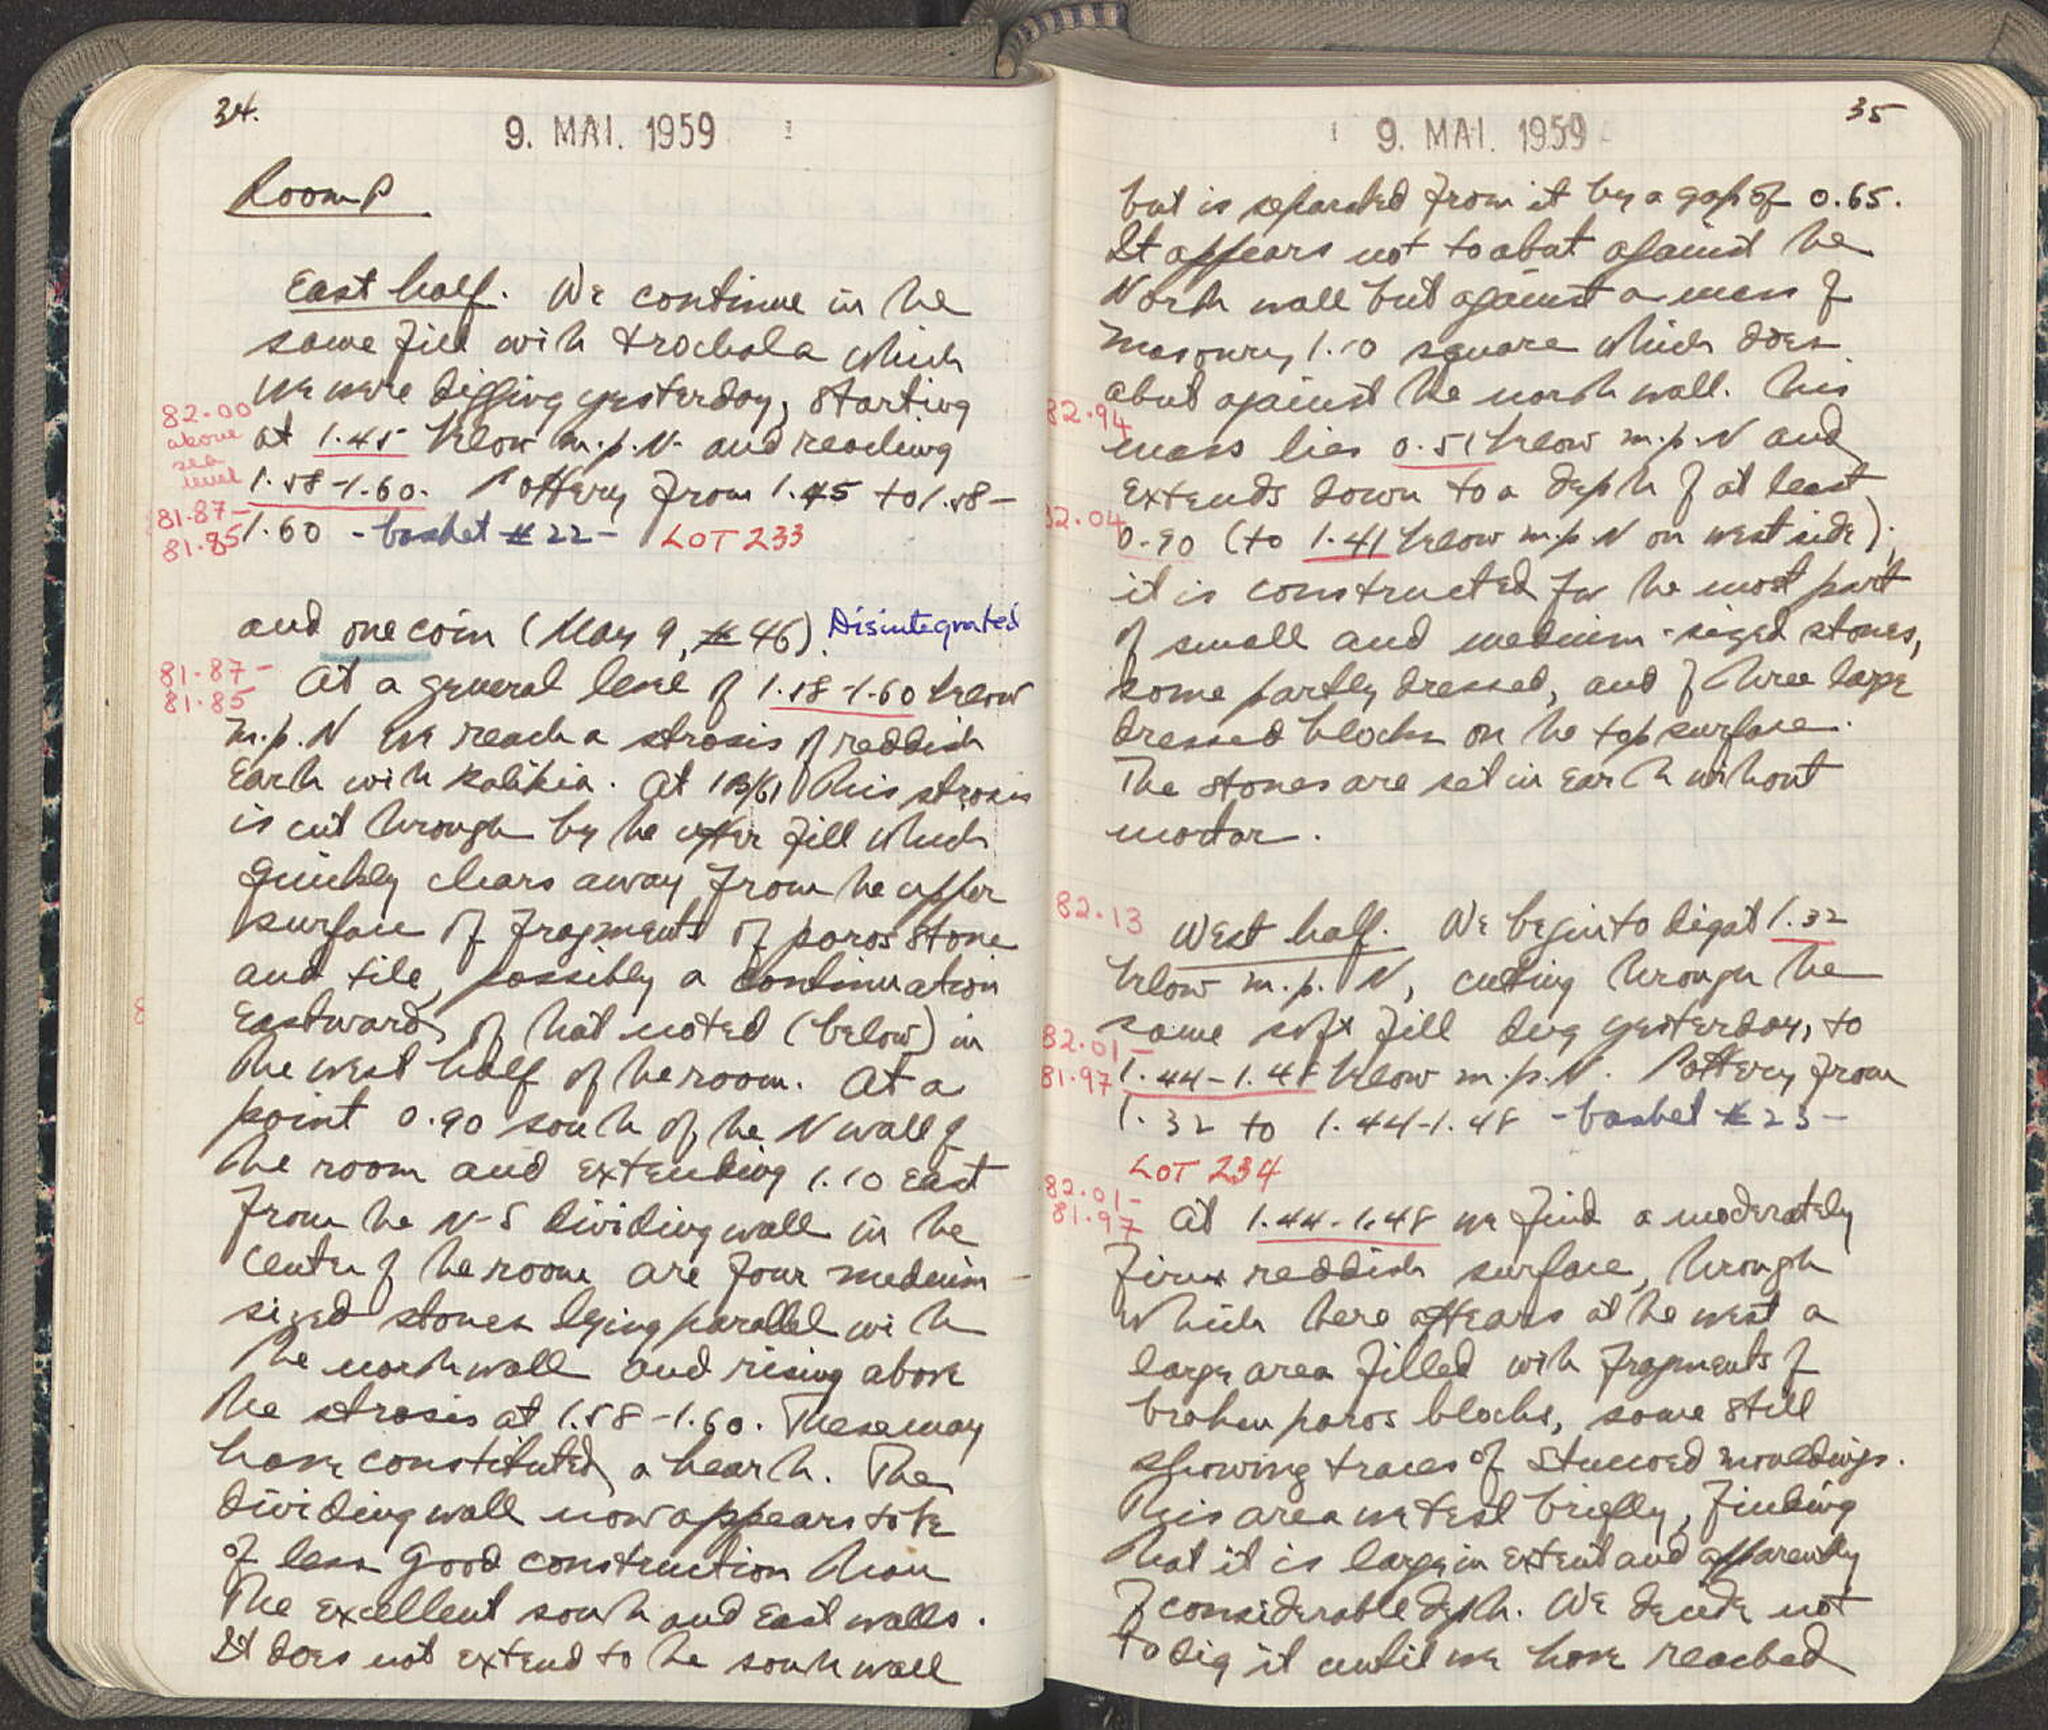 34.
9. MAI. 1959
Room P
East half. We continue in the
same fill with trochala which
we were digging yesterday, starting
82.00
above
sea
level
at 1.45 below m.p.N. and reaching
1.58-1.60. Pottery from 1.45 to 1.58-
81.87-
81.85
1.60 - basket #22- LOT 233
and one coin (May 9, #46). Disintegrated
81.87-
81.85
At a general level of 1.58-1.60 below
m.p.N we reach a strosis of reddish
earth with kalikia. At this strosis
is cut through by the upper fill which
quickly clears away from the upper
surface of fragments of poros stone
and tile, possibly a continuation
eastward of that noted (below) in
the west half of the room. At a
point 0.90 south of the N wall of
the room and extending 1.10 east
from the N-S dividing wall in the
center of the room are four medium-
sized stones lying parallel with
the north wall and rising above
the strosis at 1.58-1.60. These may
have constituted a hearth. The
dividing wall now appears to be
of less good construction than
the excellent south and east walls.
It does not extend to the south wall
35
9. MAI. 1959
but is separated from it by a gap of 0.65.
It appears not to abut against the
North wall but against a mass of
masonry 1.10 square which does
abut against the north wall. This
82.94
mass lies 0.51 below m.p.N and
extends down to a depth of at least
82.04
0.90 (to 1.41 below m.p.N on west side);
it is constructed for the most part
of small and medium-sized stones,
some partly dressed, and of three large
dressed blocks on the top surface.
The stones are set in earth without
mortar.
82.13
West half. We begin to dig at 1.32
below m.p.N, cutting through the
same soft fill dug yesterday, to
82.01-
81.97
1.44-1.48 below m.p.N. Pottery from
1.32 to 1.44-1.48 - basket #23-
LOT 234
82.01-
81.97
At 1.44-1.48 we find a moderately
firm reddish surface, through
which there appears at the west a
large area filled with fragments of
broken poros blocks, some still
showing traces of stuccoed mouldings.
This area we test briefly, finding
that it is large in extent and apparently
of considerable depth. We decide not
to dig it until we have reached